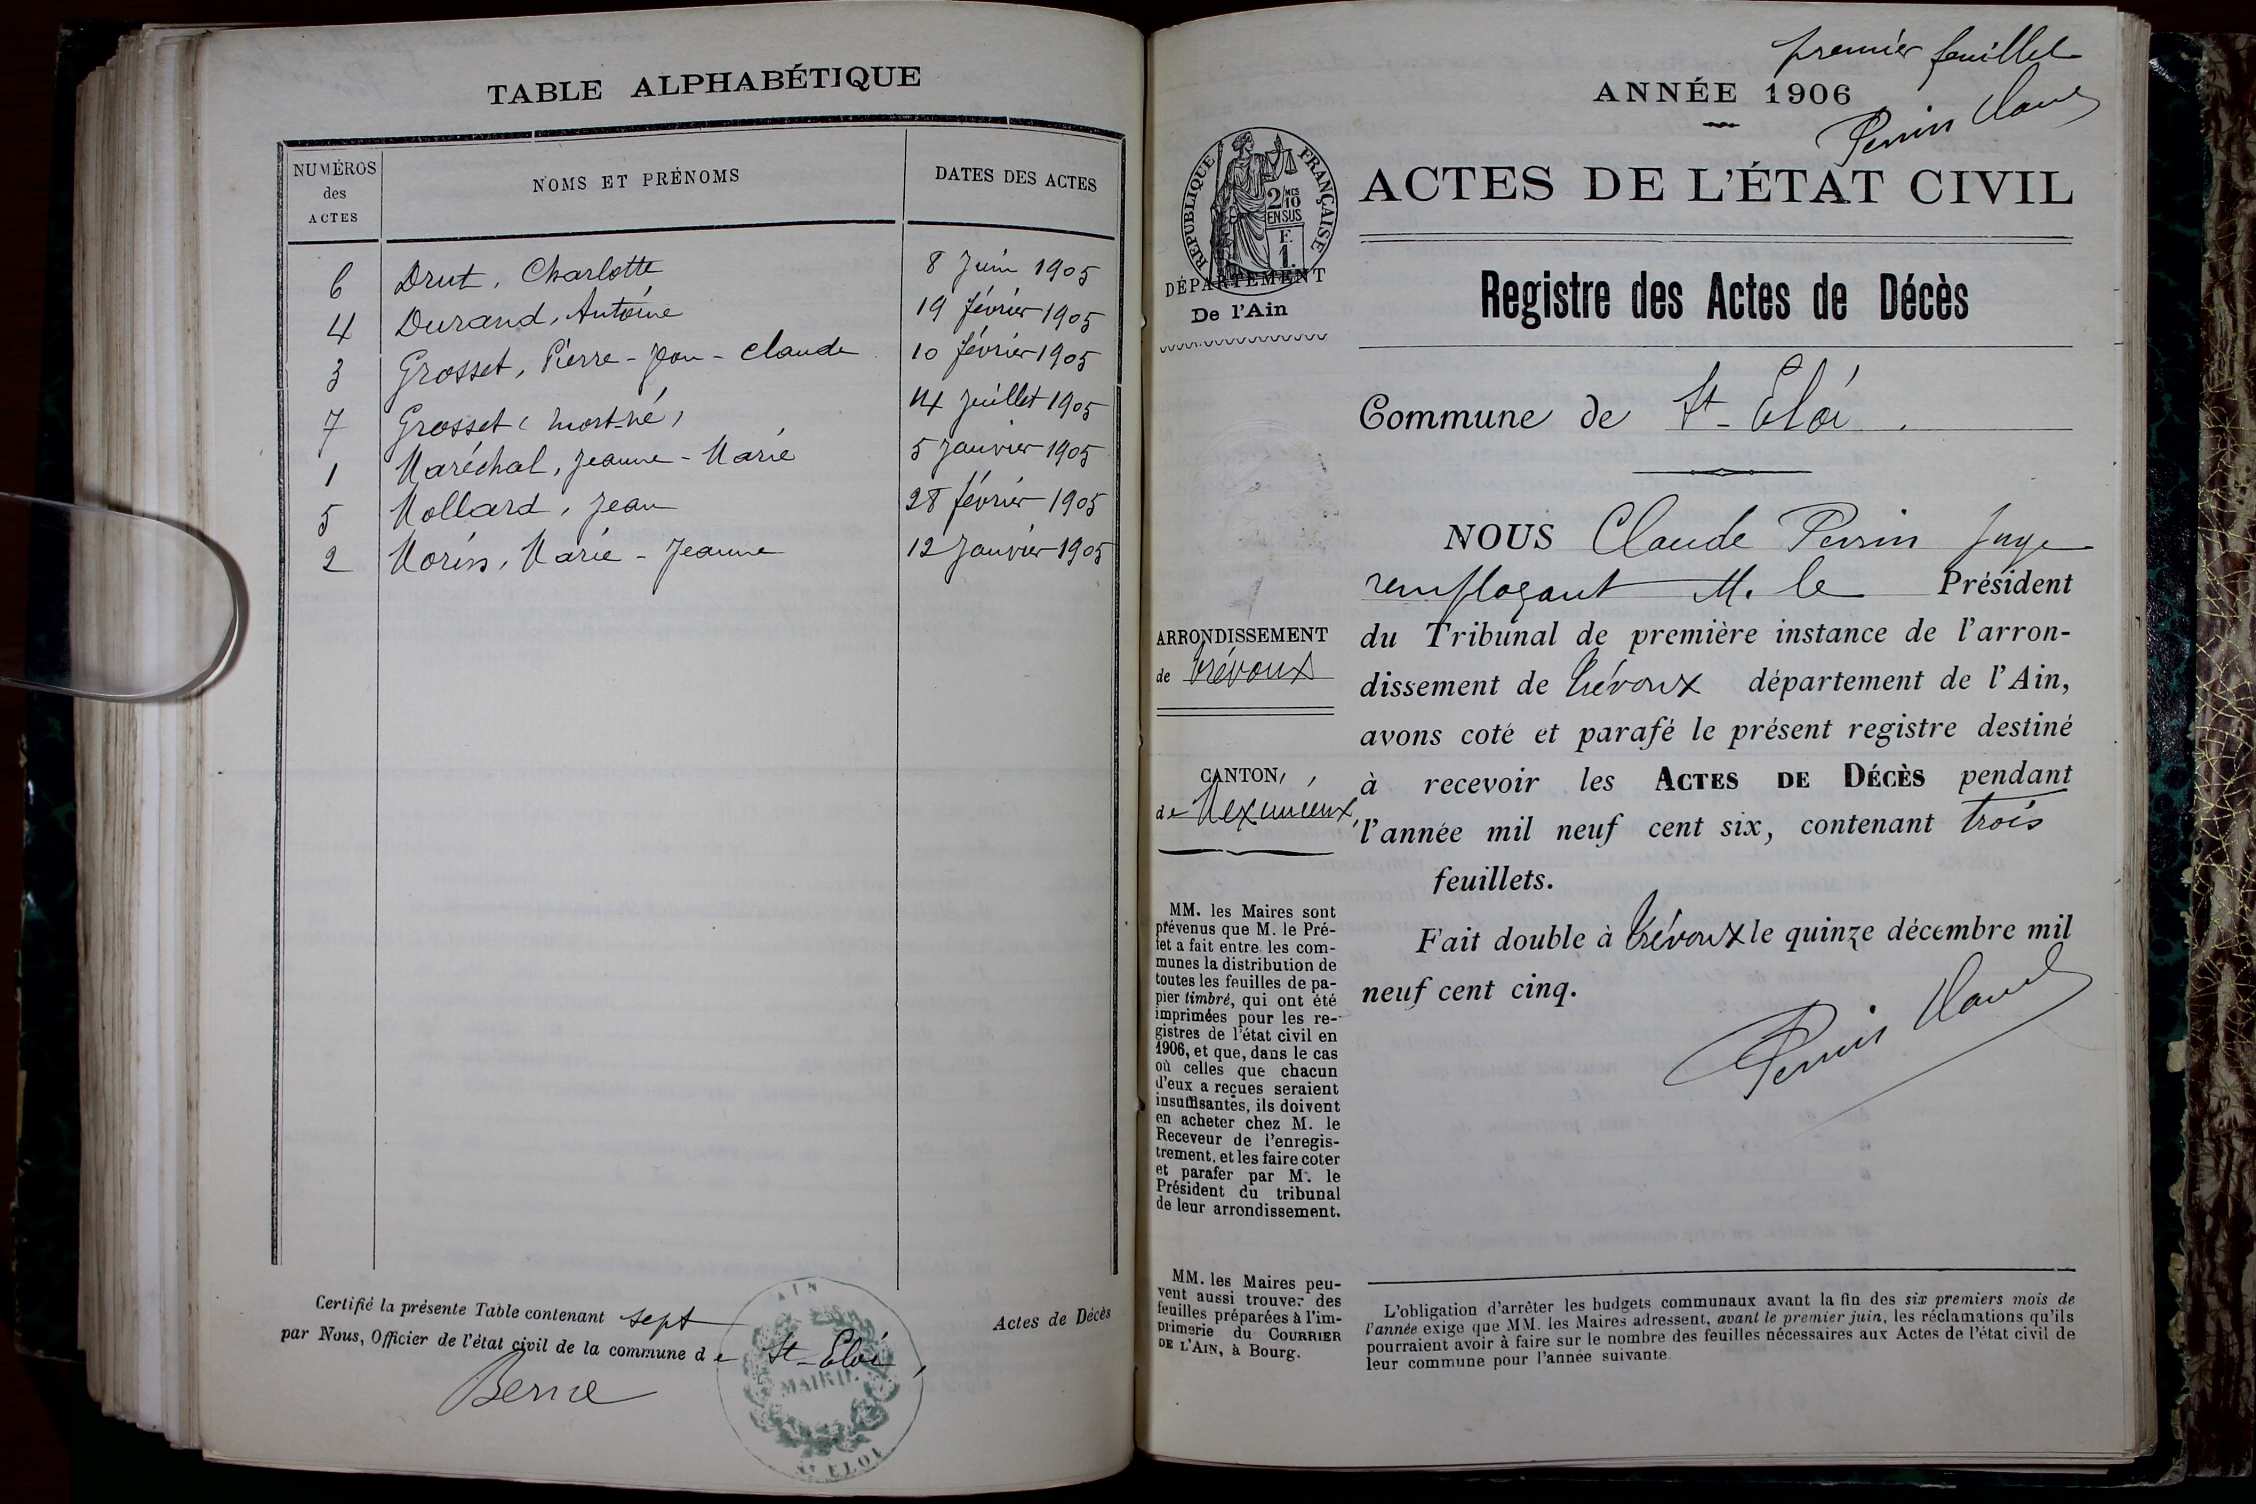 TABLE ALPHABÉTIQUE
NUMÉROS des ACTES
NOMS ET PRÉNOMS
DATES DES ACTES
6 Drut, Charlotte 8 Juin 1905
4 Durand, Antoine 19 février 1905
3 Grosset, Pierre-Jean-Claude 10 février 1905
7 Grosset (mort-né) 14 Juillet 1905
1 Maréchal, Jeanne-Marie 5 Janvier 1905
5 Mollard, Jean 28 février 1905
2 Morin, Marie-Jeanne 12 Janvier 1905
Certifié la présente Table contenant sept Actes de Décès
par Nous, Officier de l'état civil de la commune de St-Eloi,
AIN
MAIRIE
ST ELOI
premier feuillet
ANNÉE 1906
Perrin Claude
RÉPUBLIQUE FRANÇAISE
2/10 MES
EN SUS
F.
1.
DÉPARTEMENT
De l'Ain
ACTES DE L'ÉTAT CIVIL
Registre des Actes de Décès
Commune de St-Eloi.
NOUS Claude Perrin Juge
remplaçant M. le Président
du Tribunal de première instance de l'arron-
dissement de Trévoux département de l'Ain,
avons coté et parafé le présent registre destiné
à recevoir les ACTES DE DÉCÈS pendant
l'année mil neuf cent six, contenant trois
feuillets.
Fait double à Trévoux le quinze décembre mil
neuf cent cinq.
Perrin Claude
ARRONDISSEMENT
de Trévoux
CANTON
de Meximieux
MM. les Maires sont
prévenus que M. le Pré-
fet a fait entre les com-
munes la distribution de
toutes les feuilles de pa-
pier timbré, qui ont été
imprimées pour les re-
gistres de l'état civil en
1906, et que, dans le cas
où celles que chacun
d'eux a reçues seraient
insuffisantes, ils doivent
en acheter chez M. le
Receveur de l'enregis-
trement, et les faire coter
et parafer par M. le
Président du tribunal
de leur arrondissement.
MM. les Maires peu-
vent aussi trouver des
feuilles préparées à l'im-
primerie du COURRIER
DE L'AIN, à Bourg.
L'obligation d'arrêter les budgets communaux avant la fin des six premiers mois de
l'année exige que MM. les Maires adressent, avant le premier juin, les réclamations qu'ils
pourraient avoir à faire sur le nombre des feuilles nécessaires aux Actes de l'état civil de
leur commune pour l'année suivante.